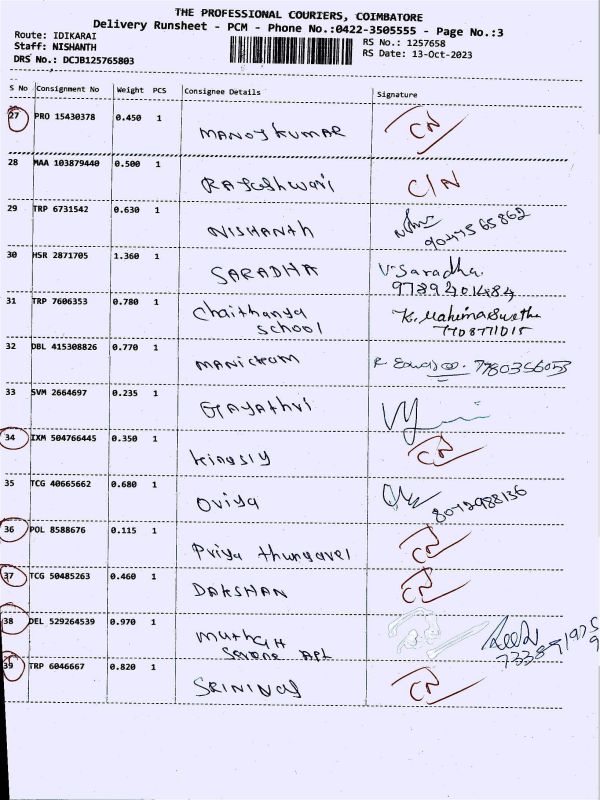 THE PROFESSIONAL COURIERS, COIMBATORE
Delivery Runsheet - PCM - Phone No.:0422-3505555 - Page No.:3
Route: IDIKARAI
Staff: NISHANTH
DRS No.: DCJB125765803
RS No.: 1257658
RS Date: 13-Oct-2023
S No Consignment No Weight PCS Consignee Details Signature
27 PRO 15430378 0.450 1 MANOJ KUMAR CN
28 MAA 103879440 0.500 1 RAJeshwari C/N
29 TRP 6731542 0.630 1 NISHANth
30 HSR 2871705 1.360 1 SARADHA V. Saradha.
9789401484
31 TRP 7606353 0.780 1 Chaithanya
school
7708771015
32 DBL 415308826 0.770 1 MANickam
33 SVM 2664697 0.235 1 GAyAthri
34 IXM 504766445 0.350 1 kingsly CN
35 TCG 40665662 0.680 1 Oviya 8072988136
36 POL 8588676 0.115 1 Priya thungavel CN
37 TCG 50485263 0.460 1 DAKSHAN CN
38 DEL 529264539 0.970 1
39 TRP 6046667 0.820 1 CN